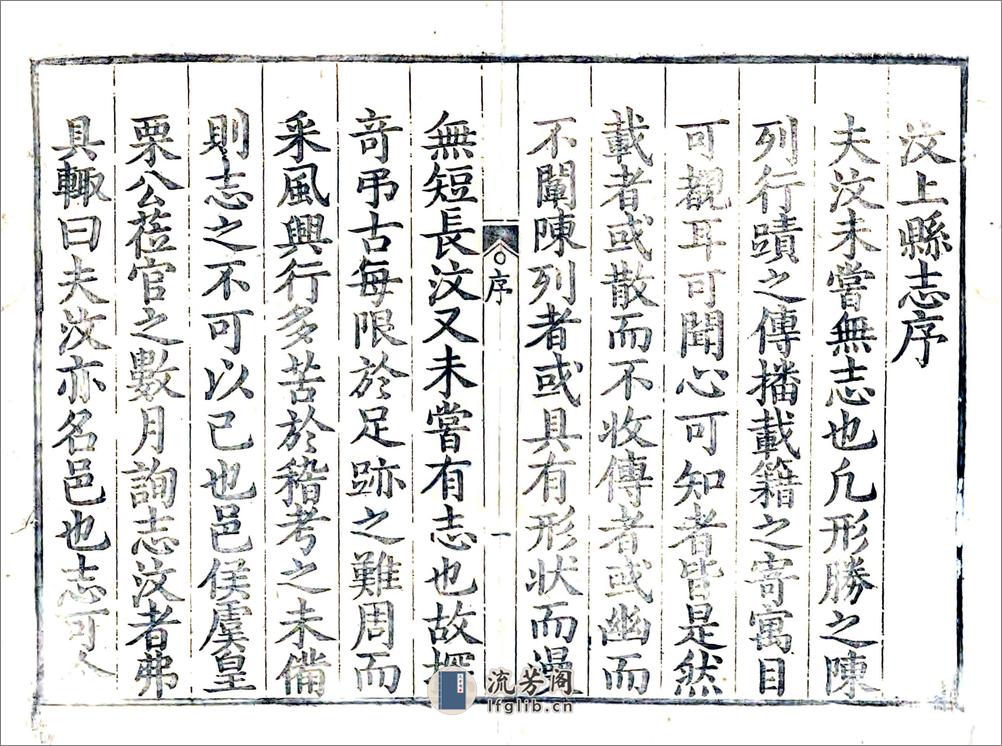 汶上縣志序
夫汶未嘗無志也凡形勝之陳
列行蹟之傳播載籍之寄寓目
可覩耳可聞心可知者皆是然
載者或散而不收傳者或幽而
不闡陳列者或具有形狀而漫
〇序
一
無短長汶又未嘗有志也故探
奇弔古每限於足跡之難周而
采風興行多苦於稽考之未備
則志之不可以已也邑侯虞皇
栗公蒞官之數月詢志汶者弗
具輙曰夫汶亦名邑也志可
流芳閣
lfglib.cn